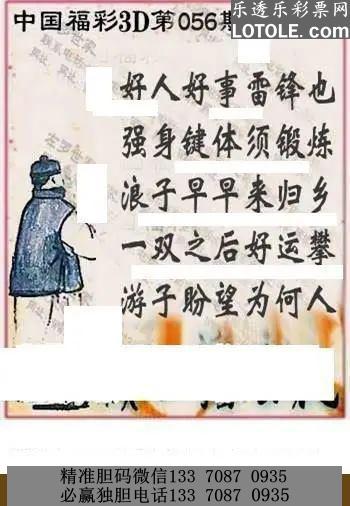 乐透乐彩票网
LOTOLE.COM
中国福彩3D第056期
好人好事雷锋也
强身键体须锻炼
浪子早早来归乡
一双之后好运攀
游子盼望为何人
精准胆码微信133 7087 0935
必赢独胆电话133 7087 0935